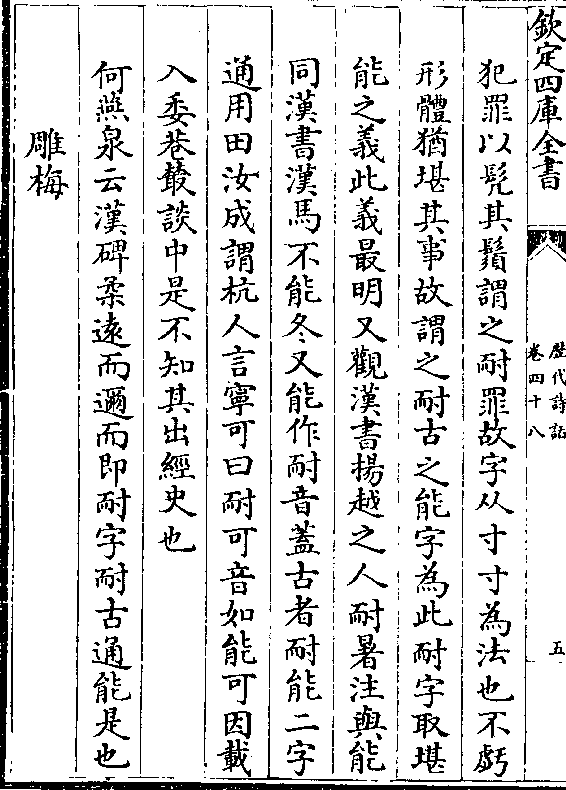 欽定四庫全書
歷代詩話
卷四十八
五
犯罪以髠其鬚謂之耐罪故字从寸寸為法也不虧
形體猶堪其事故謂之耐古之能字為此耐字取堪
能之義此義最明又觀漢書揚越之人耐暑注與能
同漢書漢馬不能冬又能作耐音蓋古者耐能二字
通用田汝成謂杭人言寧可曰耐可音如能可因載
入委巷叢談中是不知其出經史也
何燕泉云漢碑柔遠而邇而即耐字耐古通能是也
雕梅